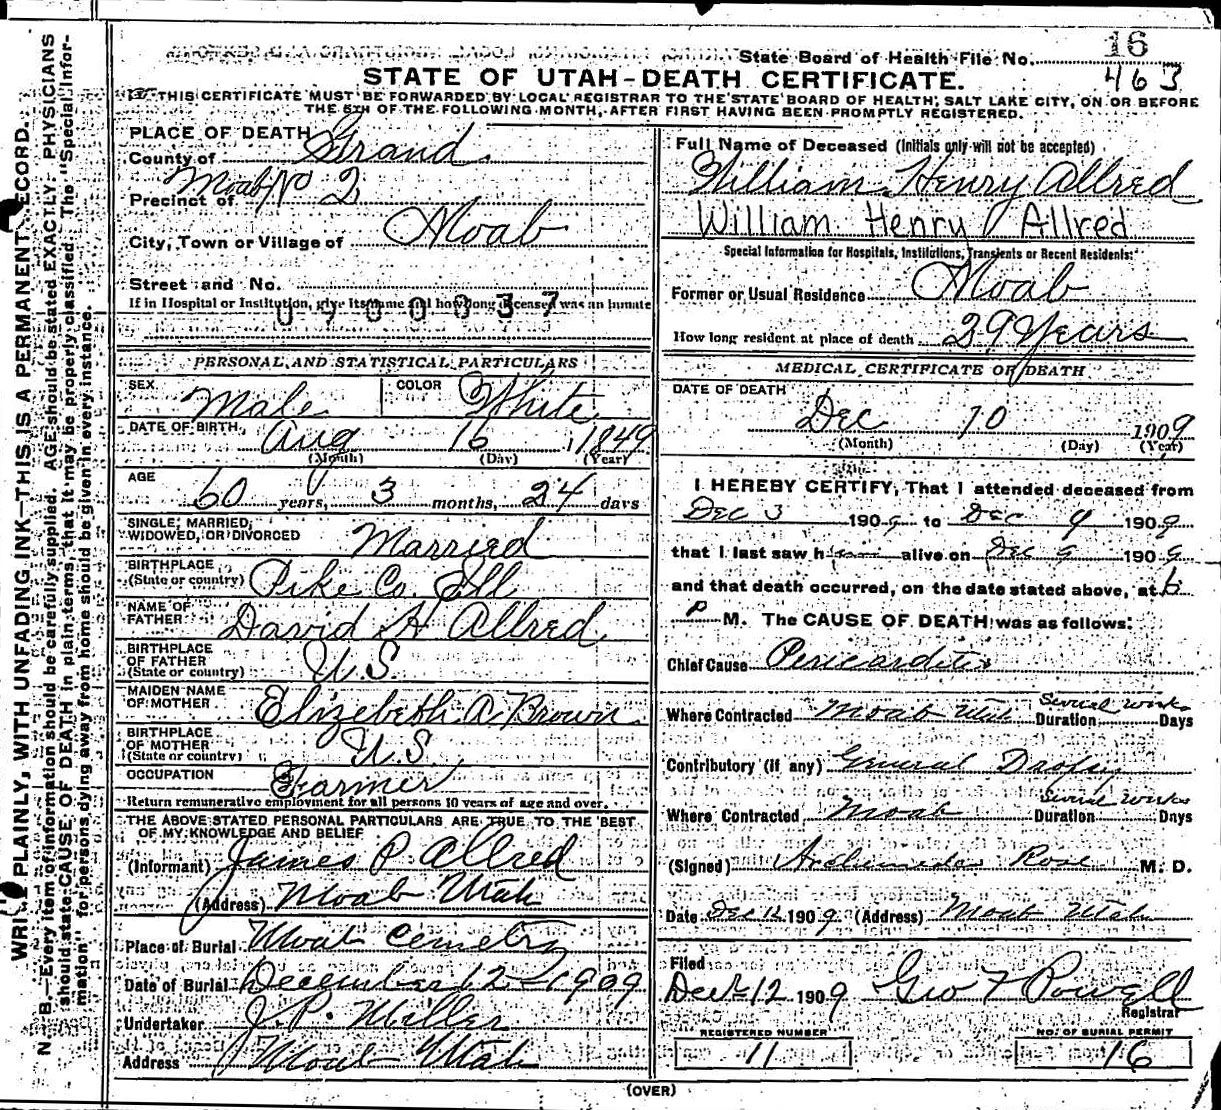 State Board of Health File No. 16
463
STATE OF UTAH-DEATH CERTIFICATE.
THIS CERTIFICATE MUST BE FORWARDED BY LOCAL REGISTRAR TO THE STATE BOARD OF HEALTH, SALT LAKE CITY, ON OR BEFORE
THE 5TH OF THE FOLLOWING MONTH, AFTER FIRST HAVING BEEN PROMPTLY REGISTERED.
WRITE PLAINLY, WITH UNFADING INK—THIS IS A PERMANENT RECORD.
N. B.—Every item of information should be carefully supplied. AGE should be stated EXACTLY. PHYSICIANS
should state CAUSE OF DEATH in plain terms, that it may be properly classified. The "Special Infor-
mation" for persons dying away from home should be given in every instance.
PLACE OF DEATH
County of Grand
Precinct of Moab No 2
City, Town or Village of Moab
Street and No.
If in Hospital or Institution, give its name and how long deceased was an inmate
0900037
PERSONAL AND STATISTICAL PARTICULARS
SEX Male COLOR White
DATE OF BIRTH Aug 16 1849
(Month) (Day) (Year)
AGE 60 years, 3 months, 24 days
SINGLE, MARRIED,
WIDOWED, OR DIVORCED Married
BIRTHPLACE
(State or country) Pike Co. Ill
NAME OF
FATHER David H Allred
BIRTHPLACE
OF FATHER
(State or country) U.S.
MAIDEN NAME
OF MOTHER Elizebeth A. Brown
BIRTHPLACE
OF MOTHER
(State or country) U.S.
OCCUPATION Farmer
Return remunerative employment for all persons 10 years of age and over.
THE ABOVE STATED PERSONAL PARTICULARS ARE TRUE TO THE BEST
OF MY KNOWLEDGE AND BELIEF
(Informant) James P. Allred
(Address) Moab Utah
Place of Burial Moab Cemetry
Date of Burial December 12-1909
Undertaker J.P. Miller
Address Moab Utah
Full Name of Deceased (Initials only will not be accepted)
William Henry Allred
William Henry Allred
Special Information for Hospitals, Institutions, Transients or Recent Residents:
Former or Usual Residence Moab
How long resident at place of death 29 Years
MEDICAL CERTIFICATE OF DEATH
DATE OF DEATH
Dec 10 1909
(Month) (Day) (Year)
I HEREBY CERTIFY, That I attended deceased from
Dec 3 1909 to Dec 9 1909
that I last saw him alive on Dec 9 1909
and that death occurred, on the date stated above, at 6
P M. The CAUSE OF DEATH was as follows:
Chief Cause Pericarditis
Where Contracted Moab Utah Duration Several weeks Days
Contributory (if any) General Dropsy
Where Contracted Moab Duration Several weeks Days
(Signed) Archimedes Rose M. D.
Date Dec 12 1909 (Address) Moab Utah
Filed
Dec 12 1909 Geo F Powell
Registrar
REGISTERED NUMBER
11
NO. OF BURIAL PERMIT
16
(OVER)